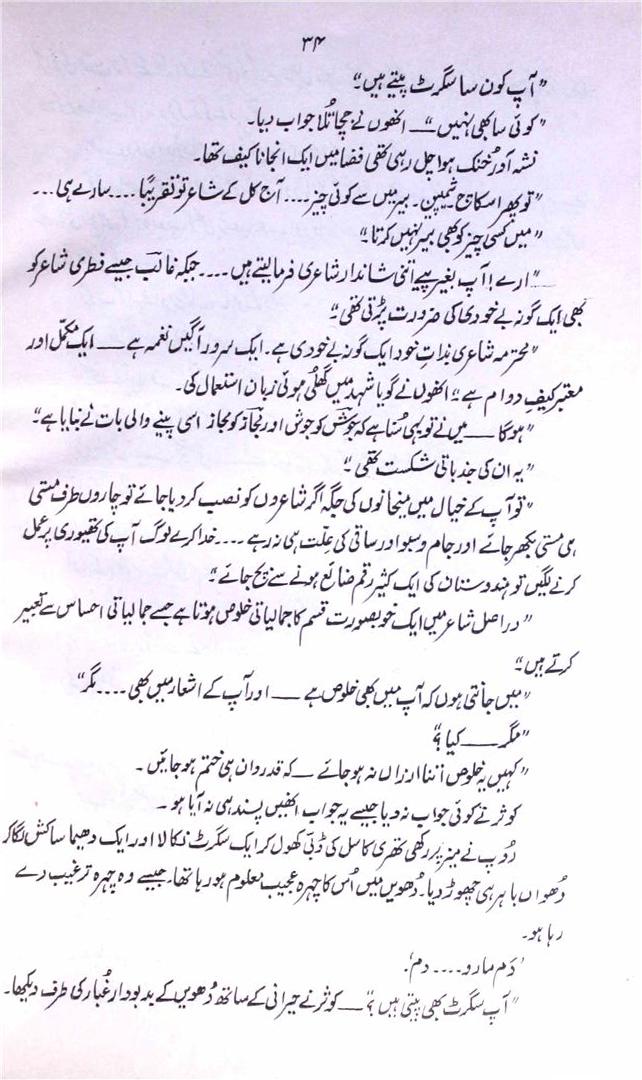 ۳۴
”آپ کون سا سگرٹ پیتے ہیں۔“
”کوئی سا بھی نہیں“ — انھوں نے جچا تُلا جواب دیا۔
نشہ آور خُنک ہوا چل رہی تھی فضا میں ایک انجانا کیف تھا۔
”تو پھر اسکاچ۔ شمپین۔ بیر میں سے کوئی چیز .... آج کل کے شاعر تو تقریبًا .... سارے ہی ...
”میں کسی چیز کو بھی بیر نہیں کرتا۔“
”ارے! آپ بغیر پیے اتنی شاندار شاعری فرمالیتے ہیں .... جبکہ غالبؔ جیسے فطری شاعر کو
بھی ایک گونہ بے خودی کی ضرورت پڑتی تھی۔“
”محترمہ شاعری بذاتِ خود ایک گونہ بے خودی ہے۔ ایک سرور آگیں نغمہ ہے — ایک مکمّل اور
معتبر کیفِ دوام ہے“ انھوں نے گویا شہد میں گھُلی ہوئی زبان استعمال کی۔
”ہوگا — میں نے تو یہی سُنا ہے کہ جوشؔ کو جوشؔ اور مجازؔ کو مجازؔ اسی پینے والی بات نے بنایا ہے۔“
”یہ ان کی جذباتی شکست تھی۔“
”تو آپ کے خیال میں میخانوں کی جگہ اگر شاعروں کو نصب کردیا جائے تو چاروں طرف مستی
ہی مستی بکھر جائے اور جام و سبو اور ساقی کی علّت ہی نہ رہے .... خدا کرے لوگ آپ کی تھیوری پر عمل
کرنے لگیں تو ہندوستان کی ایک کثیر رقم ضائع ہونے سے بچ جائے“
”دراصل شاعر میں ایک خوبصورت قسم کا جمالیاتی خلوص ہوتا ہے جسے جمالیاتی احساس سے تعبیر
کرتے ہیں۔“
”میں جانتی ہوں کہ آپ میں بھی خلوص ہے — اور آپ کے اشعار میں بھی .... مگر“
”مگر — کیا؟“
”کہیں یہ خلوص اتنا ارزاں نہ ہوجائے — کہ قدردان ہی ختم ہوجائیں۔
کوثر نے کوئی جواب نہ دیا جیسے یہ جواب انھیں پسند ہی نہ آیا ہو۔
رُوپ نے میز پر رکھی تھری کاسل کی ڈبّی کھول کر ایک سگرٹ نکالا اور ایک دھیما سا کش لگا کر
دُھواں باہر ہی چھوڑ دیا۔ دُھویں میں اُس کا چہرہ عجیب معلوم ہورہا تھا۔ جیسے وہ چہرہ ترغیب دے
رہا ہو۔
’دَم مارو .... دم‘۔
”آپ سگرٹ بھی پیتی ہیں؟“ — کوثر نے حیرانی کے ساتھ دُھویں کے بدبودار غُبار کی طرف دیکھا۔